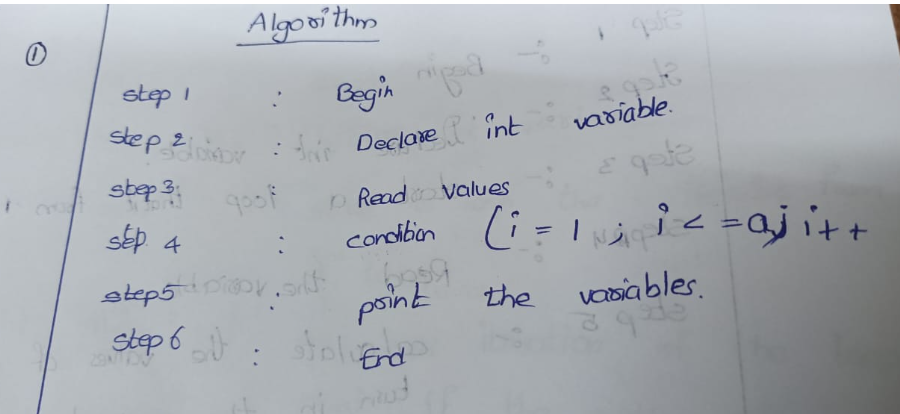 Algorithm
①
step 1 : Begin
step 2 : Declare int variable.
step 3: : Read values
step 4 : condition (i = 1 ; i < = a; i++
step5 : print the variables.
step 6 : End